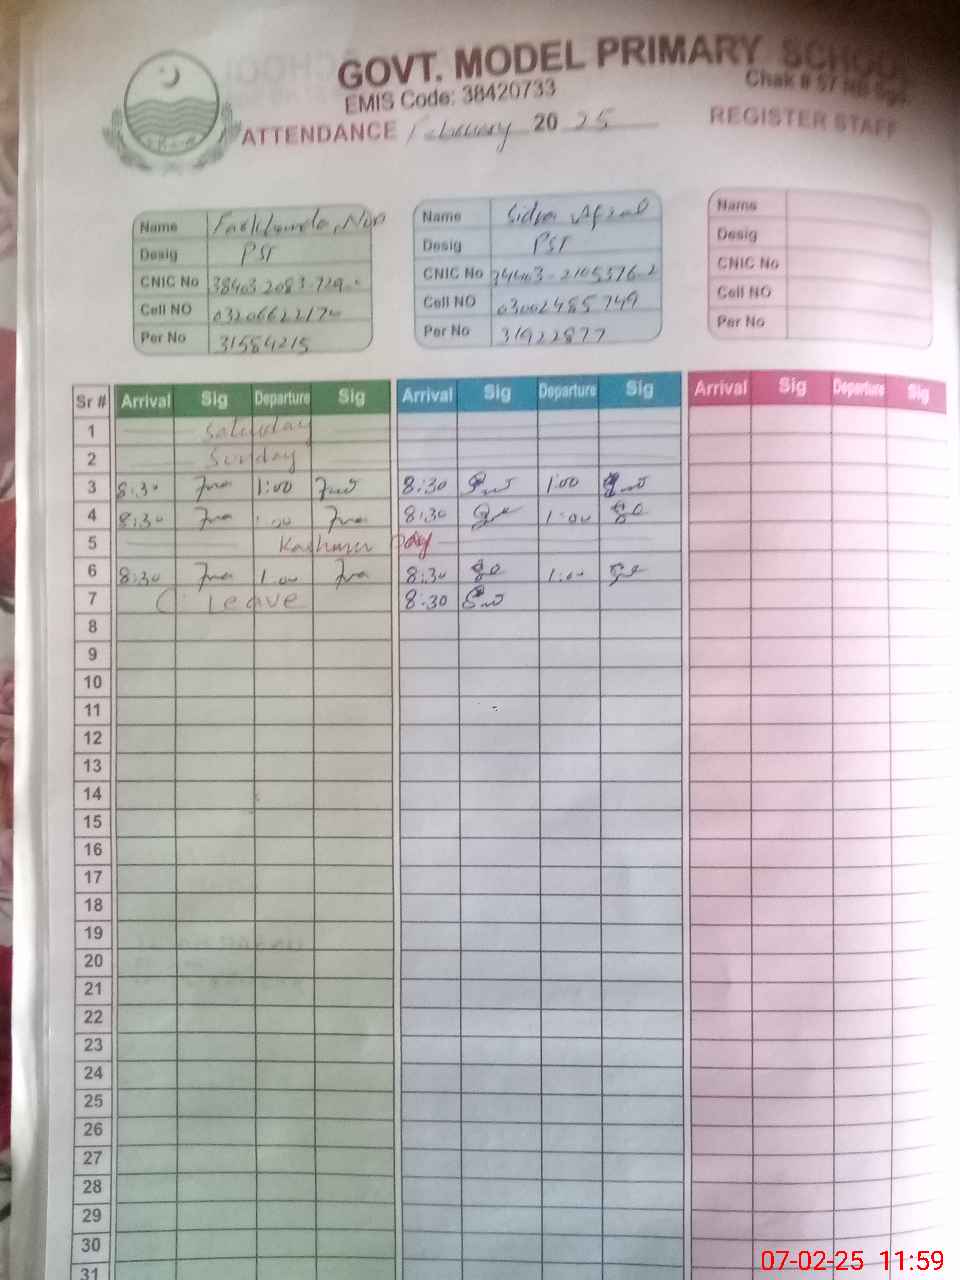 GOVT. MODEL PRIMARY SCHOOL
EMIS Code: 38420733
Chak # 57 NB Sgd
ATTENDANCE February 2025 REGISTER STAFF
Name
Desig PST
CNIC No
Cell NO
Per No 31584215
Name Sidra Afzal
Desig PST
CNIC No
Cell NO 03002485749
Per No 31922877
Name
Desig
CNIC No
Cell NO
Per No
Sr # Arrival Sig Departure Sig Arrival Sig Departure Sig Arrival Sig Departure Sig
1 Saturday
2 Sunday
3 8:30 1:00 8:30 1:00
4 8:30 1:00 8:30 1:00
5 Kashmir Day
6 8:30 1:00 8:30 1:00
7 Leave 8:30
8
9
10
11
12
13
14
15
16
17
18
19
20
21
22
23
24
25
26
27
28
29
30
31
07-02-25 11:59